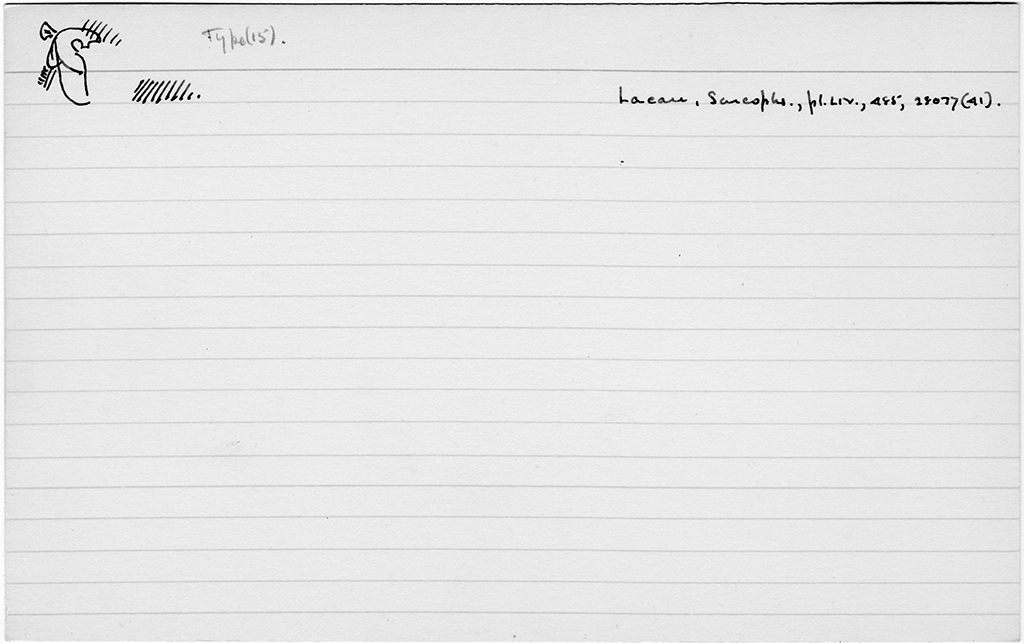 Type (15).
Lacau, Sarcophs., pl. LIV., 485, 28077 (41).